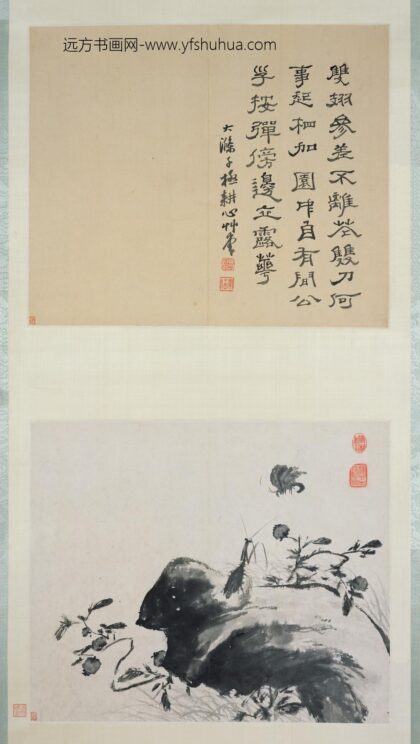 远方书画网-www.yfshuhua.com
雙翅參差不離花雙刀何
事起相加園中自有閒公
子挾彈傍邊立露華
大滌子極耕心艸堂